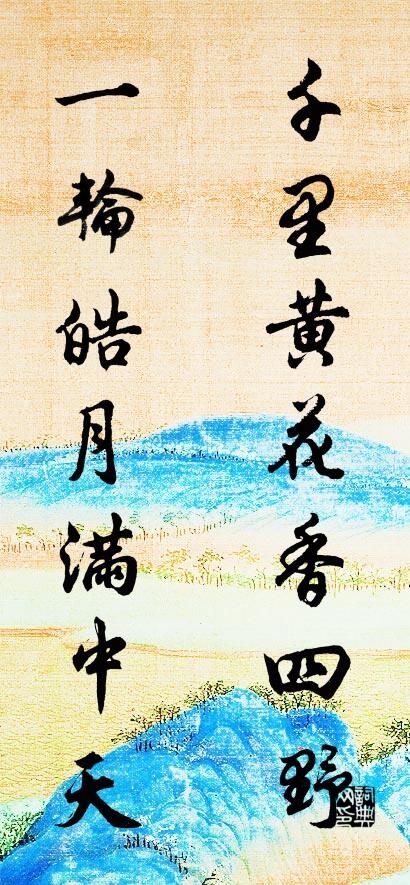 千里黄花香四野
一輪皓月滿中天